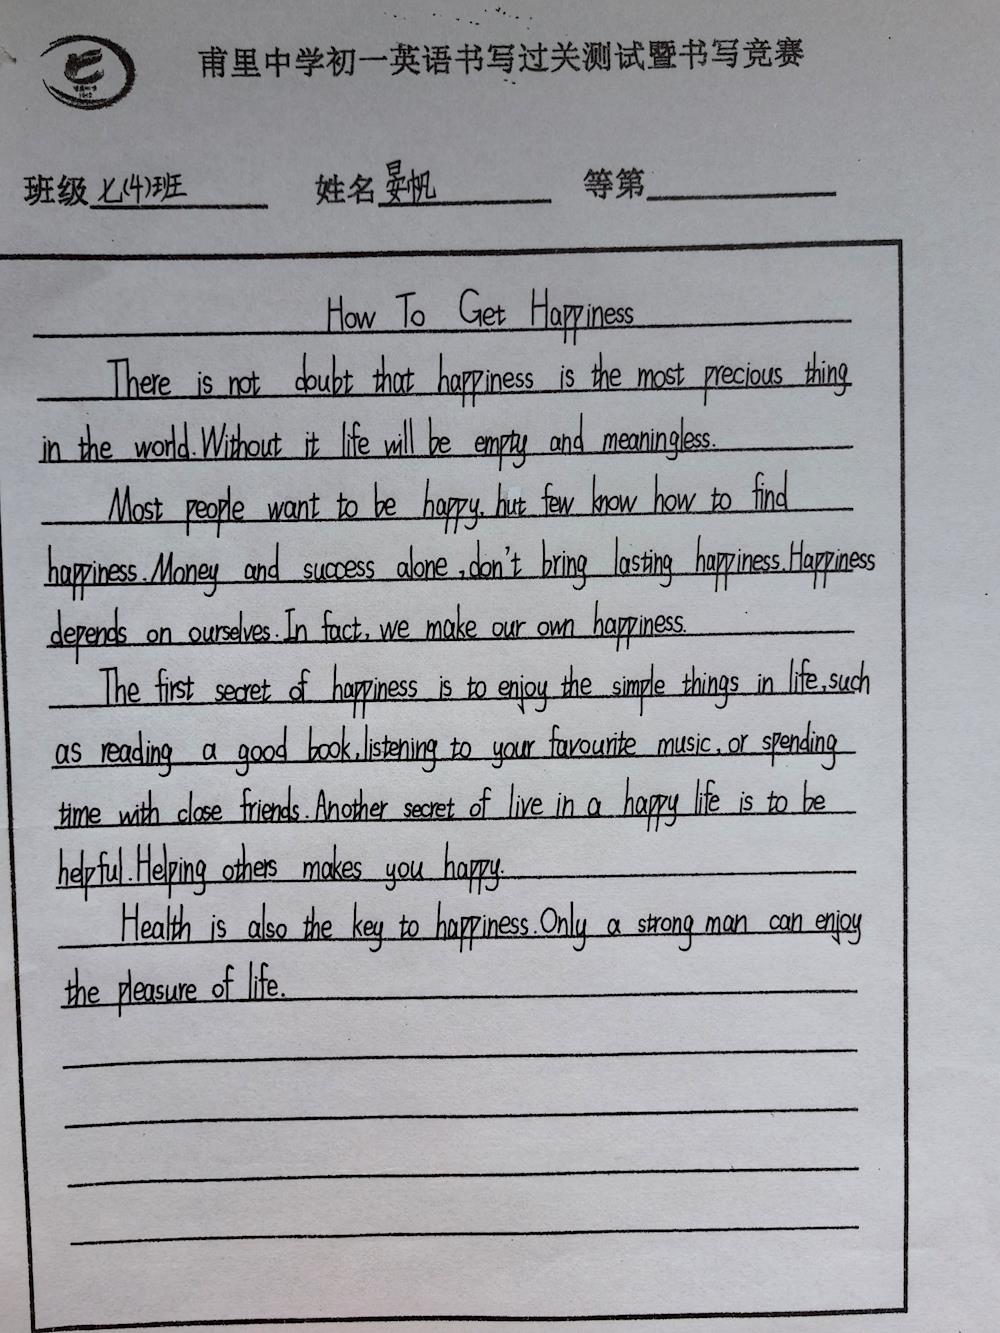 甫里中学初一英语书写过关测试暨书写竞赛
班级 七(4)班 姓名 晏帆 等第
How To Get Happiness
There is not doubt that happiness is the most precious thing
in the world. Without it life will be empty and meaningless.
Most people want to be happy, but few know how to find
happiness. Money and success alone, don't bring lasting happiness. Happiness
depends on ourselves. In fact, we make our own happiness.
The first secret of happiness is to enjoy the simple things in life, such
as reading a good book, listening to your favourite music, or spending
time with close friends. Another secret of live in a happy life is to be
helpful. Helping others makes you happy.
Health is also the key to happiness. Only a strong man can enjoy
the pleasure of life.